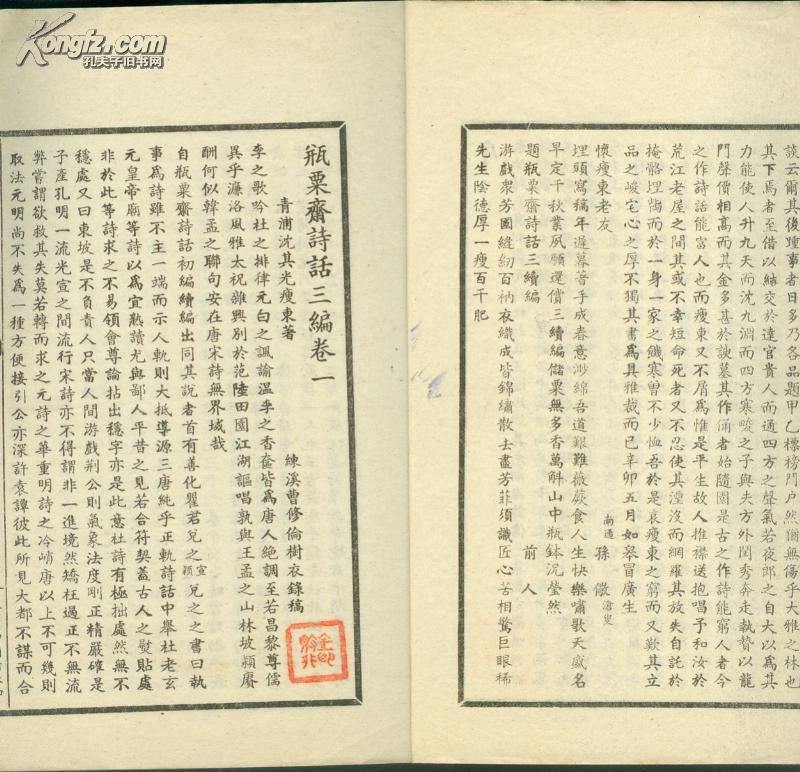 Kongfz.com
孔夫子旧书网
談云爾其後踵事者日多乃各品題甲乙標榜門户然猶無傷乎大雅之林也
其下焉者至借以結交於達官貴人而通四方之聲氣若夜郎之自大以爲其
力能使人升九天而沉九淵而四方寒畯之子與夫方外閨秀奔走執贄以龍
門聲價相高而其金多甚於諛墓其作俑者始隨園是古之作詩能窮人者今
之作詩話能富人也而瘦東又不屑爲惟是平生故人推襟送抱唱予和汝於
荒江老屋之間其或不幸短命死者又不忍使其湮沒而網羅其放失自託於
掩骼埋胔而於一身一家之饑寒曾不少恤吾於是哀瘦東之窮而又歎其立
品之峻宅心之厚不獨其書爲具雅裁而已辛卯五月如皋冒廣生
懷瘦東老友
南通 孫儆 滄叟
埋頭寫稿年遲暮著手成春意渺綿吾道艱難薇蕨食人生快樂嘯歌天歲名
早定千秋業夙願還償三續編儲粟無多香萬斛山中瓶鉢沉瑩然
題瓶粟齋詩話三續編
前人
游戲衆芳圃縫紉百衲衣織成皆錦繡散去盡芳菲須識匠心苦相驚巨眼稀
先生陰德厚一瘦百千肥
瓶粟齋詩話三編卷一
青浦沈其光瘦東著
練溪曹修倫樹衣錄稿
李之歌吟杜之排律元白之諷諭溫李之香奩皆爲唐人絶調至若昌黎尊儒
異乎濂洛風雅太祝雜興別於范陸田園江湖謳唱孰與王孟之山林坡潁賡
酬何似韓孟之聯句安在唐宋詩無界域哉
自瓶粟齋詩話初編續編出同其說者首有善化瞿君兌之宣穎兌之之書曰執
事爲詩雖不主一端而示人軌則大抵導源三唐純乎正軌詩話中舉杜老玄
元皇帝廟等詩以爲宜熟讀尤與鄙人平昔之見若合符契蓋古人之熨貼處
非於此等詩求之不易領會尊論拈出穩字亦是此意杜詩有極拙處然無不
穩處又曰東坡是不負責人只當人間游戲荆公則氣象法度剛正精嚴確是
子產孔明一流光宣之間流行宋詩亦不得謂非一進境然矯枉過正不無流
弊嘗謂欲救其失莫若轉而求之元詩之華重明詩之冷峭唐以上不可幾則
取法元明尚不失爲一種方便接引公亦深許袁譚彼此所見大都不謀而合